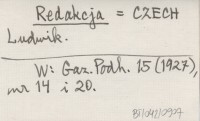 Redakcja = CZECH
Ludwik.
W: Gaz. Podh. 15 (1927),
nr 14 i 20.